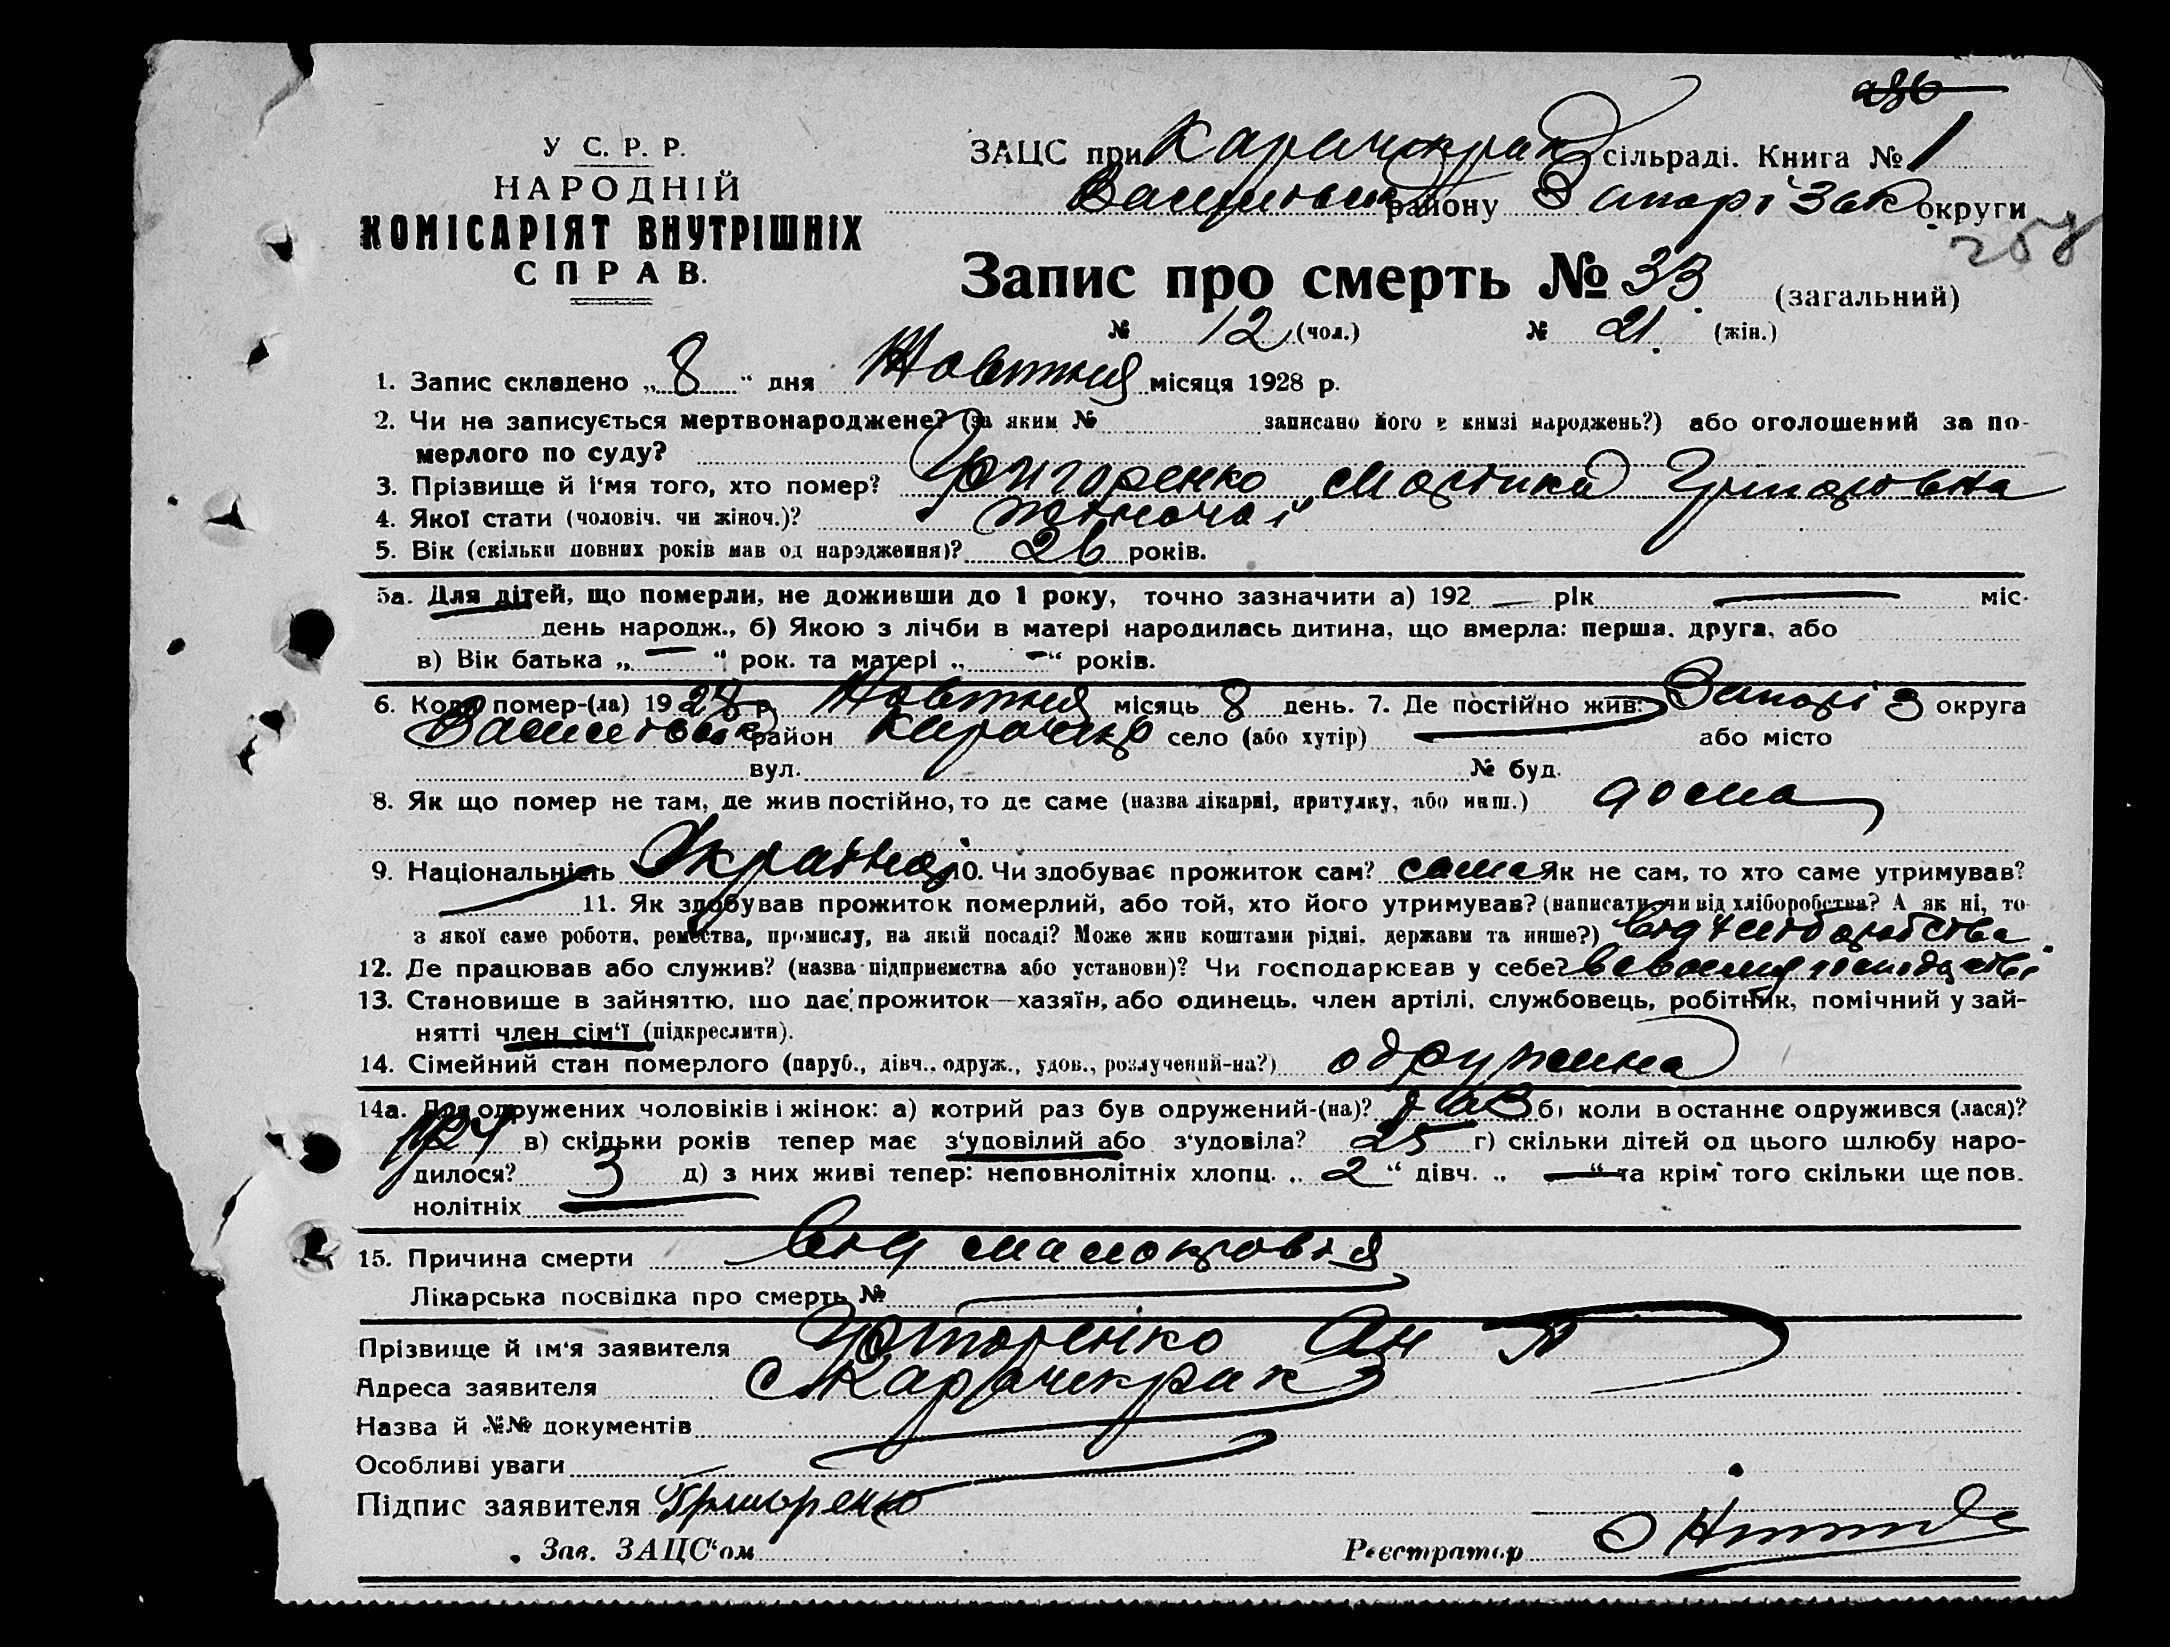 У С. Р. Р.
НАРОДНІЙ
КОМІСАРІЯТ ВНУТРІШНІХ
СПРАВ.
ЗАЦС при Карачокрак сільраді. Книга № 1
району Запоріз округи
258
Запис про смерть № 33 (загальний)
№ 12 (чол.) № 21. (жін.)
1. Запис складено „ 8 “ дня Жовтня місяця 1928 р.
2. Чи не записується мертвонароджене? (за яким № записано його в книзі народжень?) або оголошений за по-
мерлого по суду?
3. Прізвище й і‘мя того, хто помер? Григоренко Григоровна
4. Якої стати (чоловіч. чи жіноч.)? жіночої
5. Вік (скільки повних років мав од народження)? 26 років.
5а. Для дітей, що померли, не доживши до 1 року, точно зазначити а) 192 — рік — міс.
день народж., б) Якою з лічби в матері народилась дитина, що вмерла: перша, друга, або
в) Вік батька „ — “ рок. та матері „ — “ років.
6. Коли помер-(ла) 1928 р. Жовтня місяць 8 день. 7. Де постійно жив: Запоріз округа
район село (або хутір) — або місто
вул. № буд.
8. Як що помер не там, де жив постійно, то де саме (назва лікарні, притулку, або инш.) дома
9. Національність 10. Чи здобуває прожиток сам? сама Як не сам, то хто саме утримував?
— 11. Як здобував прожиток померлий, або той, хто його утримував? (написати чи від хліборобства? А як ні, то
з якої саме роботи, ремества, промислу, на якій посаді? Може жив коштами рідні, держави та инше?) від хліборобства.
12. Де працював або служив? (назва підприємства або установи)? Чи господарював у себе? в своему господарстві
13. Становище в зайняттю, що дає прожиток—хазяїн, або одинець, член артілі, службовець, робітник, помічний у зай-
нятті член сім‘ї (підкреслити).
14. Сімейний стан померлого (паруб., дівч., одруж., удов., розлучений-на?) одружина
14а. Для одружених чоловіків і жінок: а) котрий раз був одружений-(на)? 1 раз б) коли востаннє одружився (лася)?
в) скільки років тепер має з‘удовілий або з‘удовіла? 25 г) скільки дітей од цього шлюбу наро-
дилося? 3 д) з них живі тепер: неповнолітніх хлопц. „ 2 “ дівч. „ — “ та крім того скільки ще пов.
нолітніх —
15. Причина смерти від малокровія
Лікарська посвідка про смерть № —
Прізвище й ім‘я заявителя Григоренко Ан
Адреса заявителя с Карачекрак
Назва й №№ документів
Особливі уваги
Підпис заявителя Григоренко
Зав. ЗАЦС‘ом Реєстратор